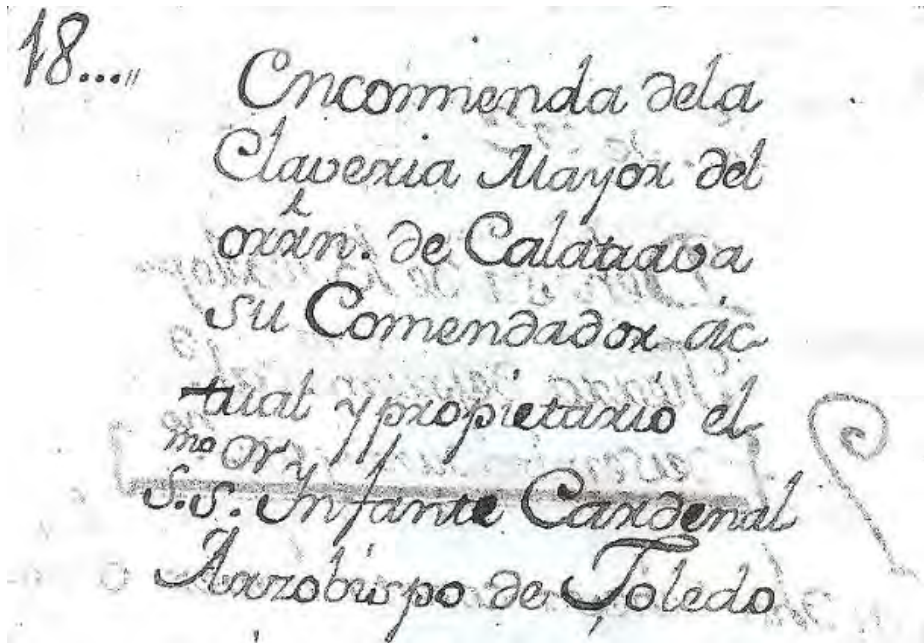 18....
Encomienda dela
Claveria Mayor del
orñ. de Calatrava
su Comendador ac-
tual y propietario el
S.mo S.or Infante Cardenal
Arzobispo de Toledo